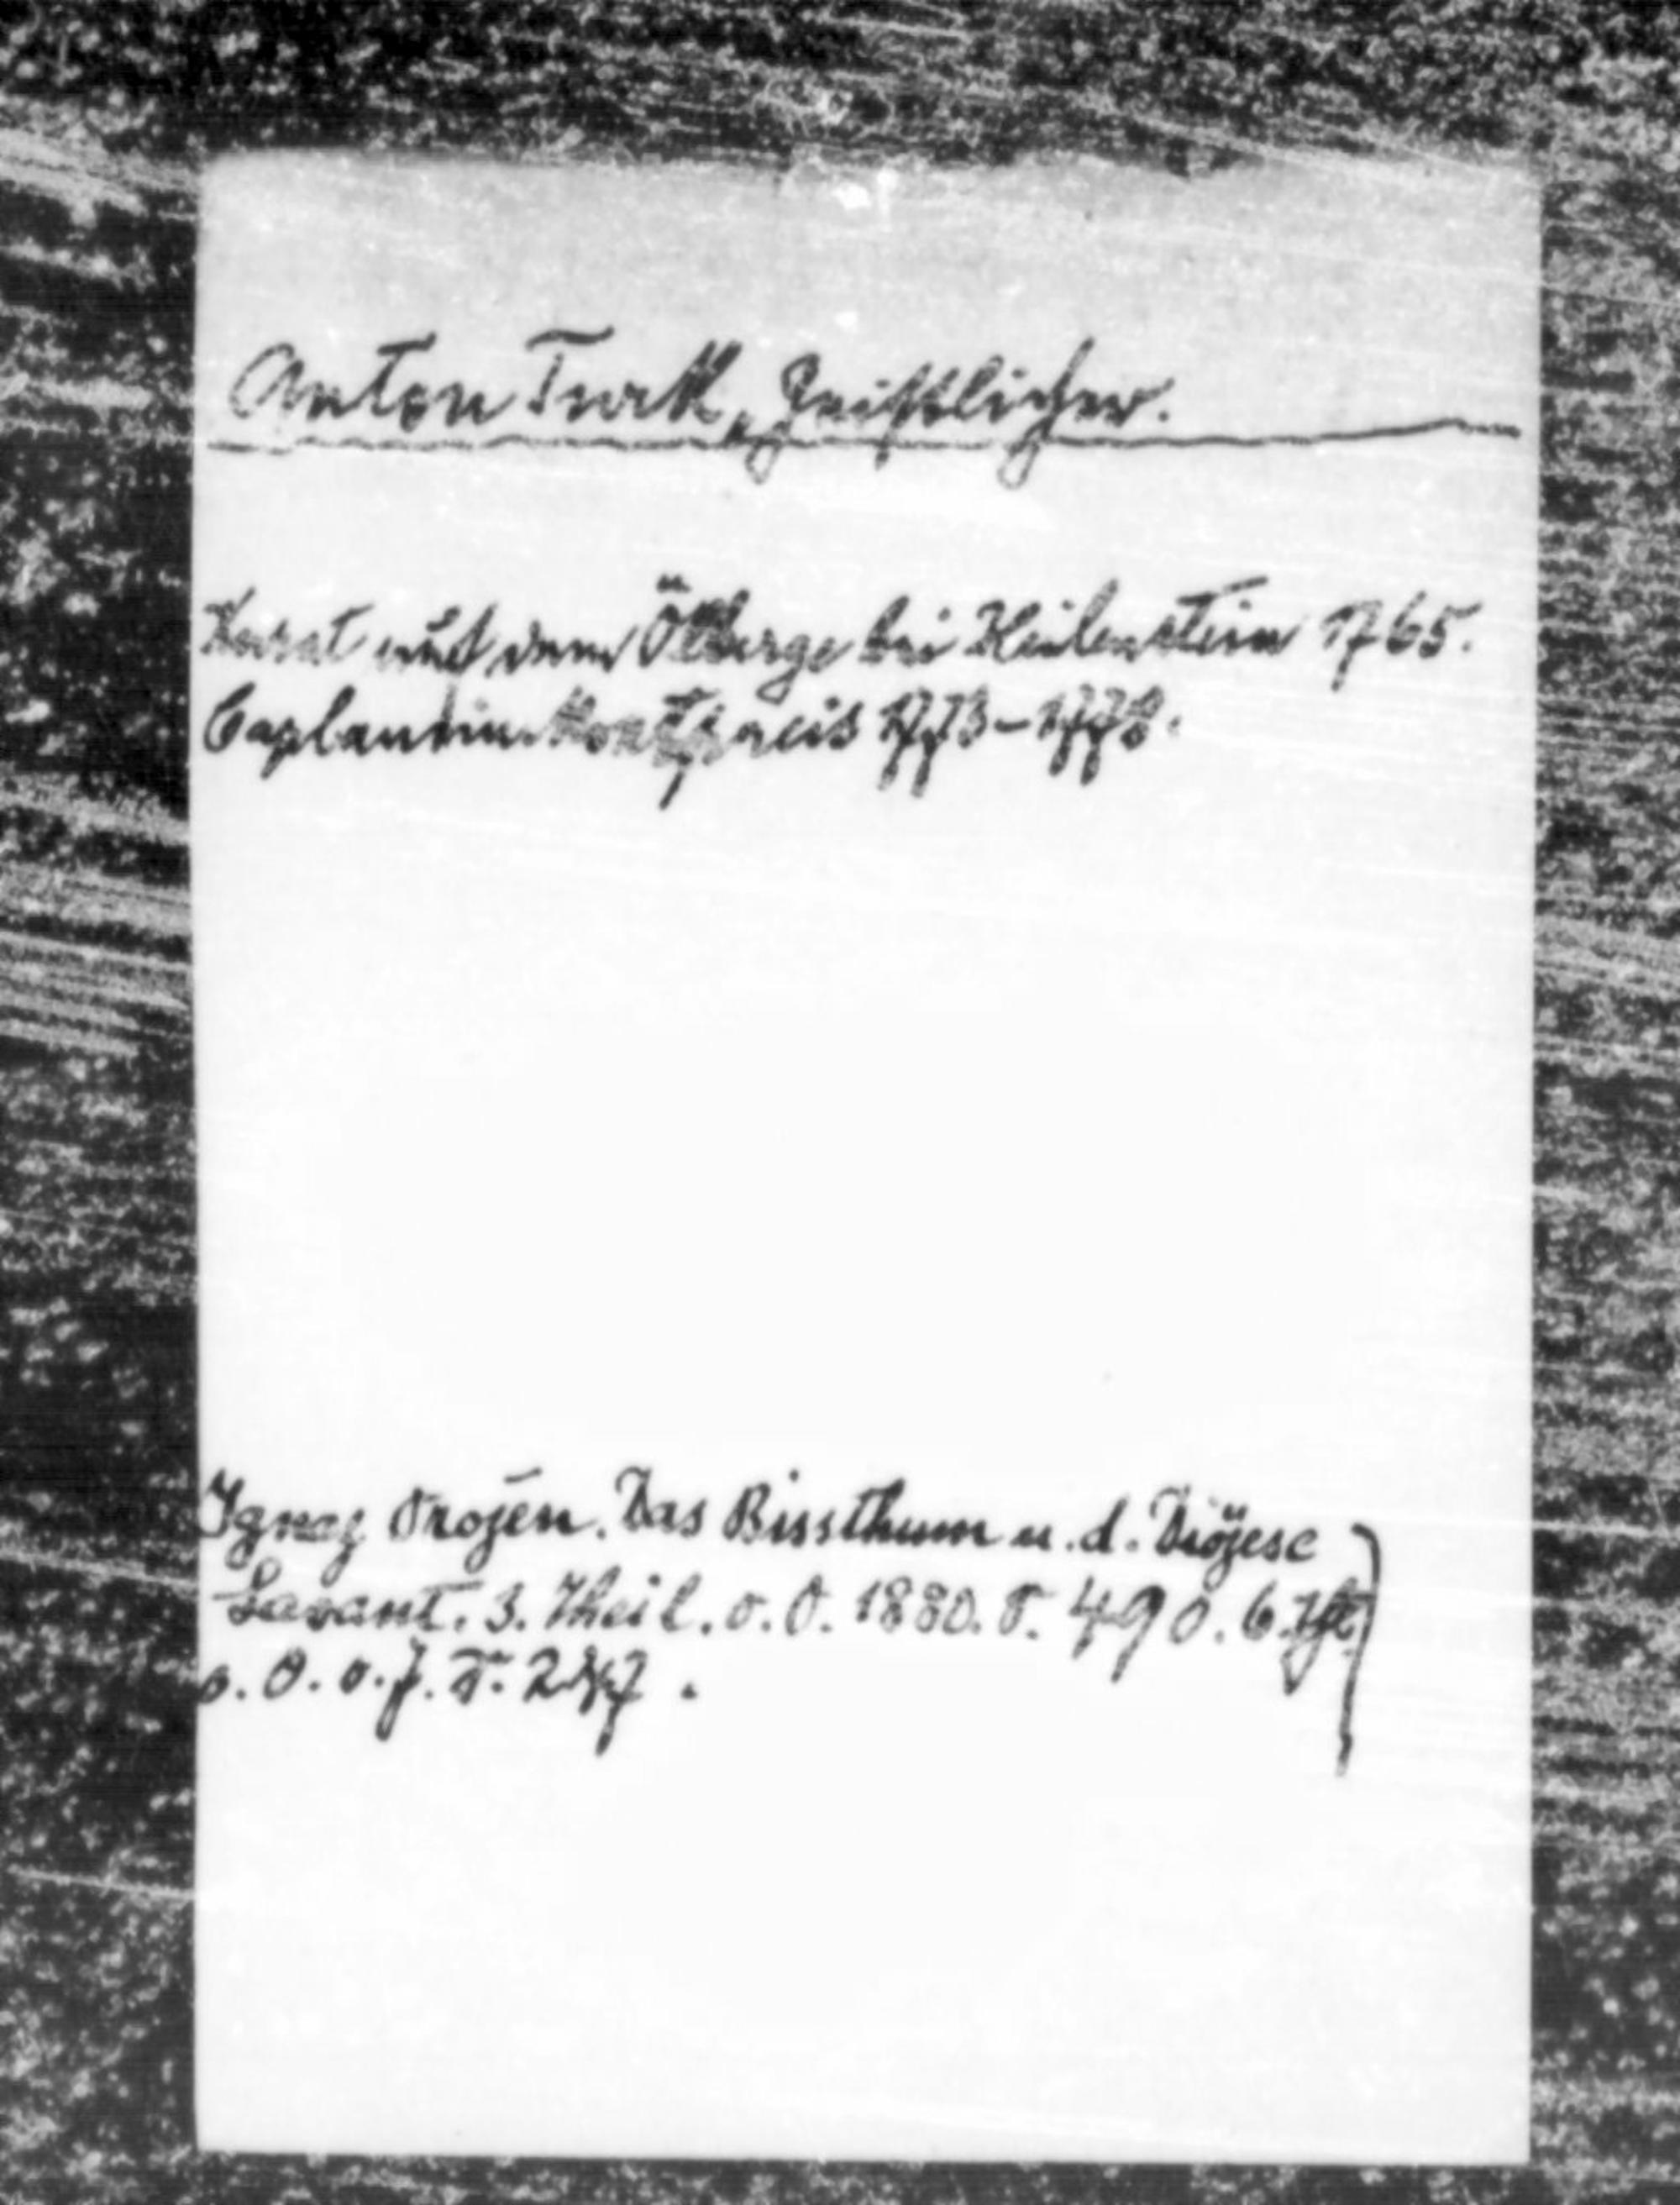 Anton Turk, Geistlicher.
Kurat auf dem Ölberge bei Heilenstein 1765.
Caplan in 1773–1778.
Ignaz Orožen. Das Bissthum u. d. Diözese
Lavant. 3. Theil. o. O. 1880. S. 490. 6. Thl.
o. O. o. J. S.